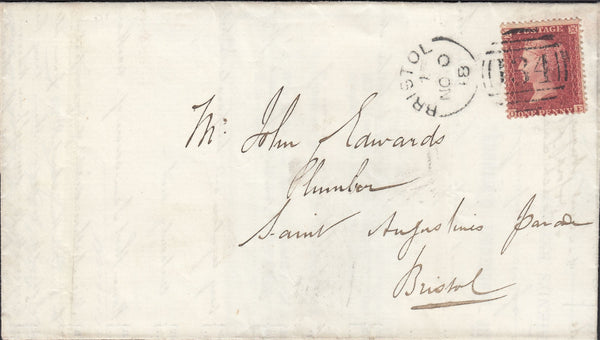 BRISTOL
POSTAGE
ONE PENNY
134
Mr John Edwards
Plumber
Saint Augustines parade
Bristol